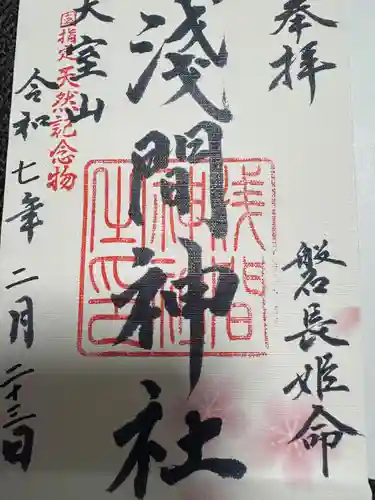 奉拝
磐長姫命
浅間神社
浅間神社之印
国指定天然記念物
大室山
令和七年二月二十三日